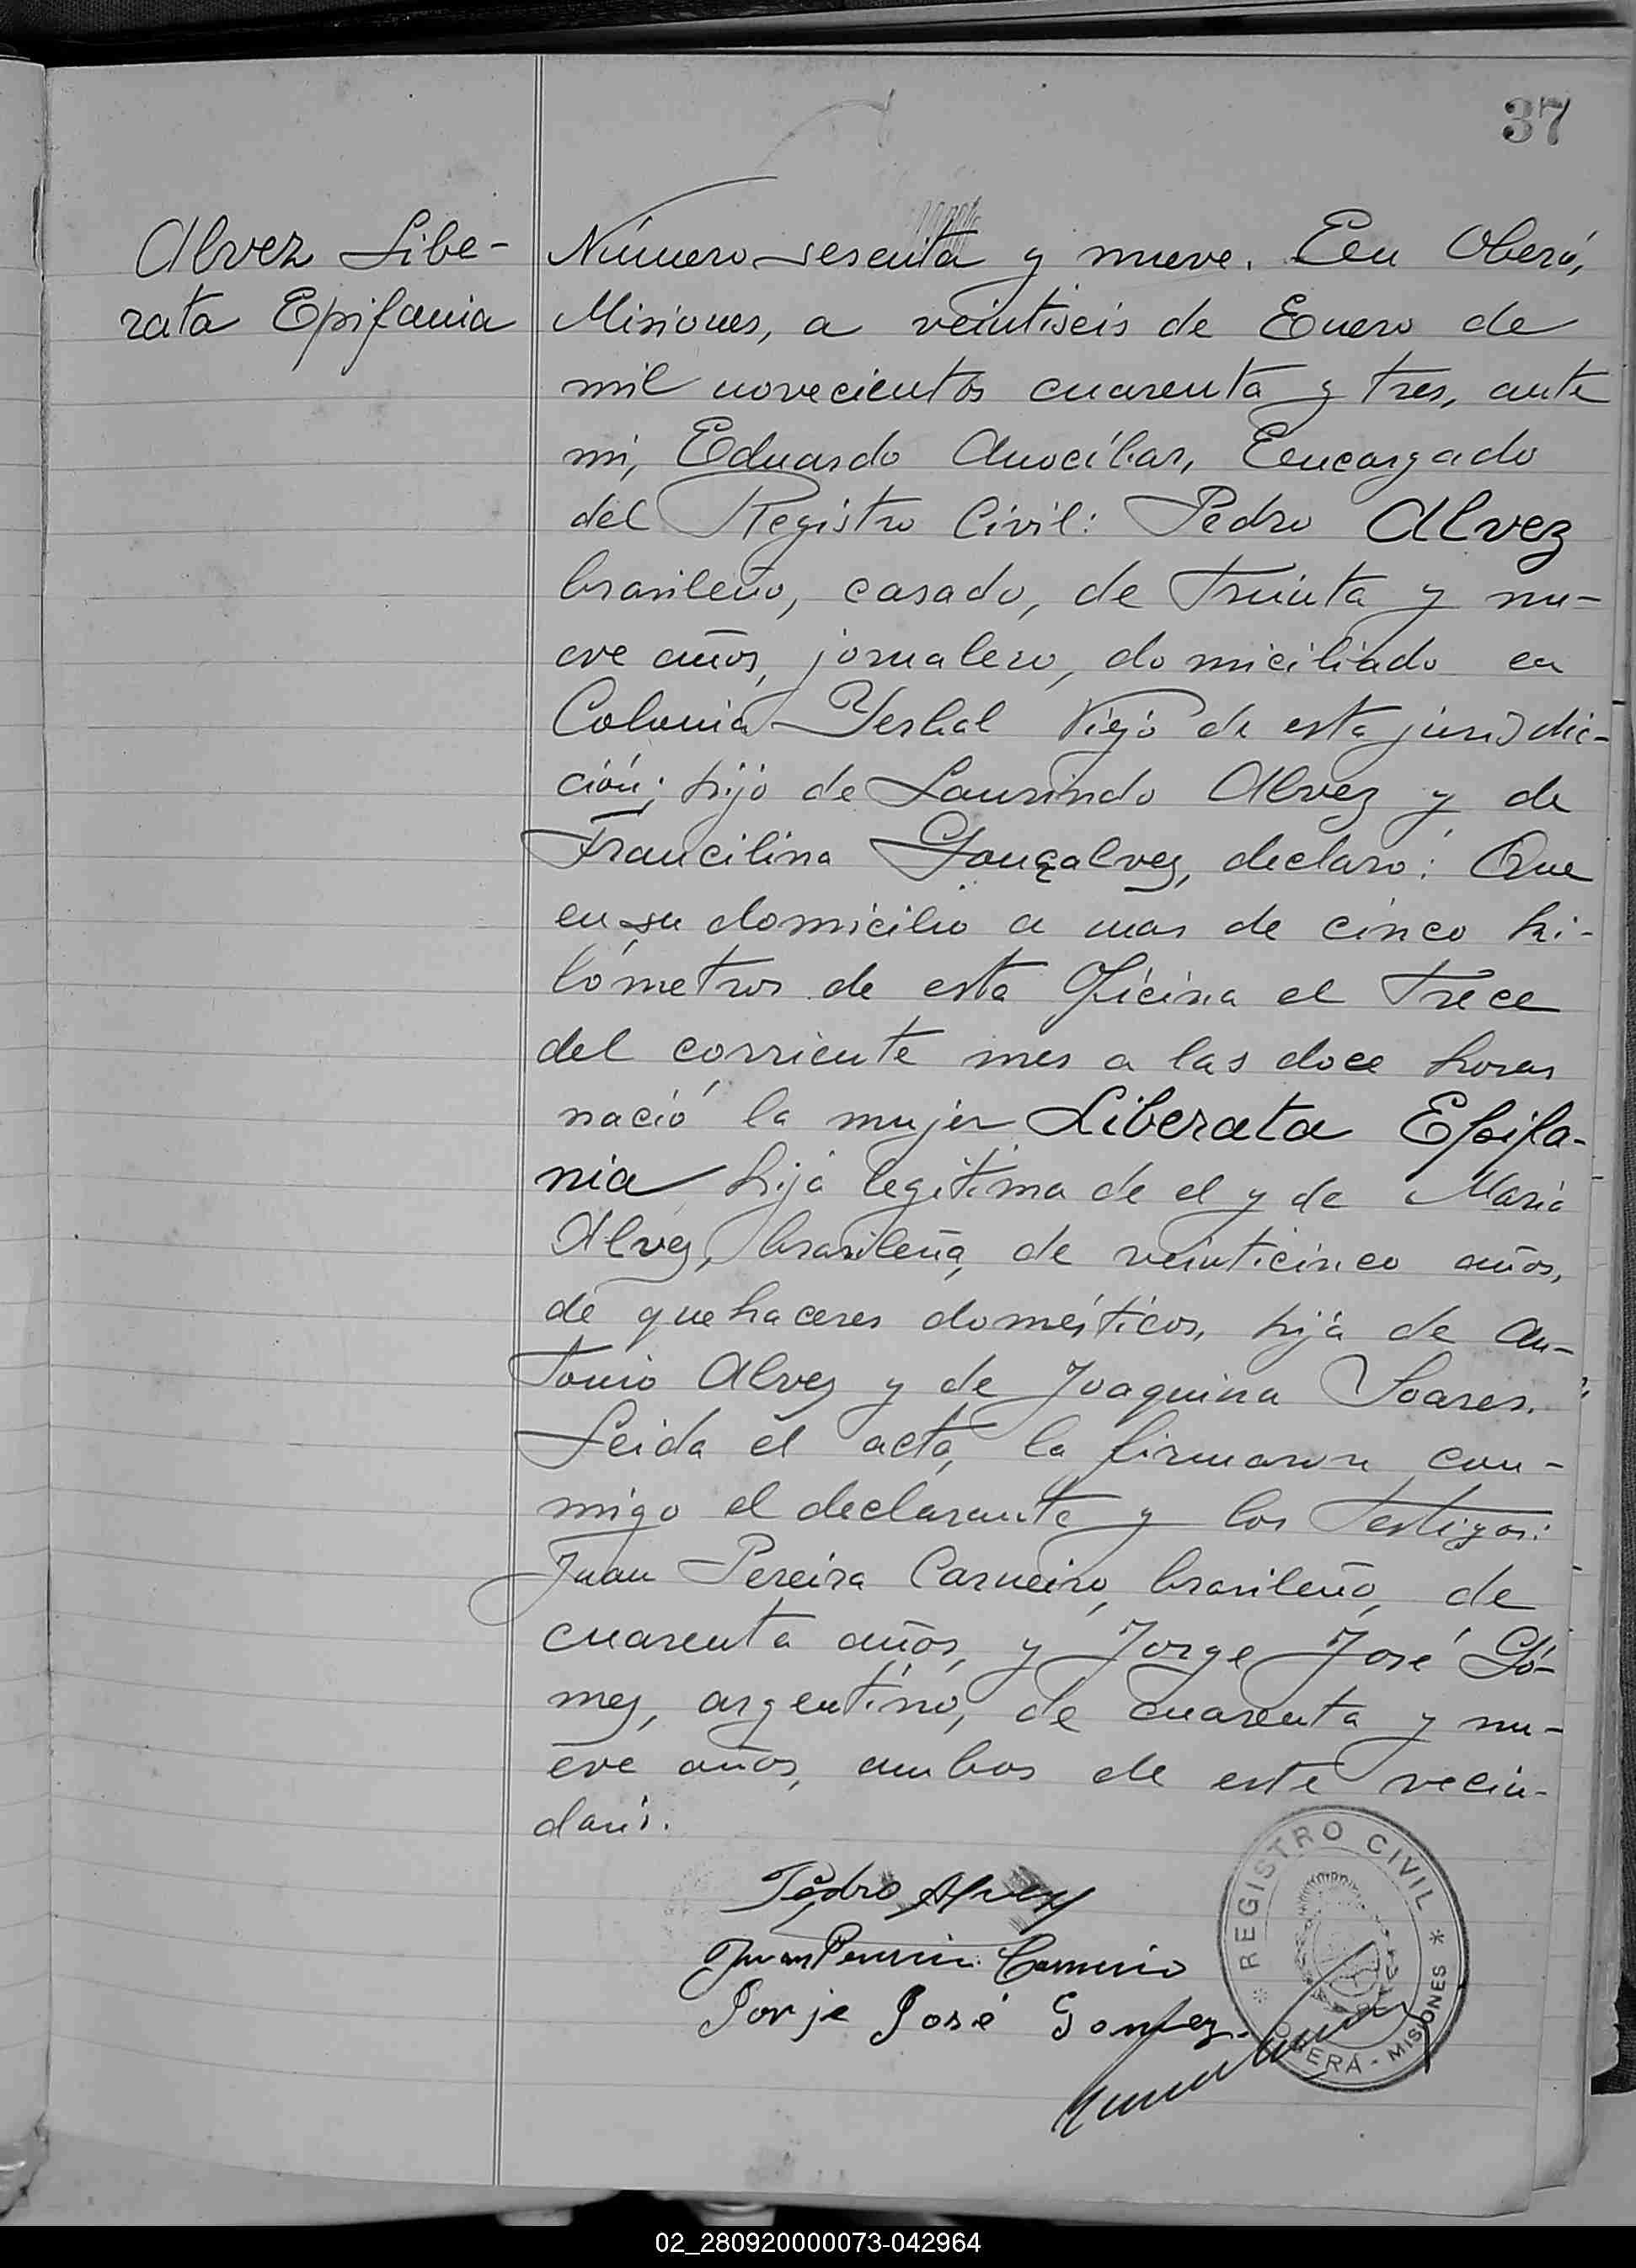 37
Alvez Libe-
rata Epifania
Número sesenta y nueve. En Oberá,
Misiones, a veintiseis de Enero de
mil novecientos cuarenta y tres, ante
mi, Eduardo Anocíbar, Encargado
del Registro Civil: Pedro Alvez
brasileño, casado, de treinta y nu-
eve años, jornalero, domiciliado en
Colonia Yerbal Viejo de esta jurisdic-
ción; hijo de Laurindo Alvez y de
Francilina Gonçalvez, declaró: Que
en su domicilio a mas de cinco ki-
lómetros de esta Oficina el trece
del corriente mes a las doce horas
nació la mujer Liberata Epifa-
nia hija legítima de el y de Maria
Alvez, brasileña, de veinticinco años,
de quehaceres domésticos, hija de An-
tonio Alvez y de Joaquina Soares.
Leida el acta, la firmaron con-
migo el declarante y los testigos:
Juan Pereira Carneiro, brasileño, de
cuarenta años, y Jorge José Gó-
mez, argentino, de cuarenta y nu-
eve años, ambos de este vecin-
dario.
Pedro Alvez
Juan Pereira Carneiro
Jorje José Gomez.
REGISTRO CIVIL
OBERÁ - MISIONES
02_280920000073-042964